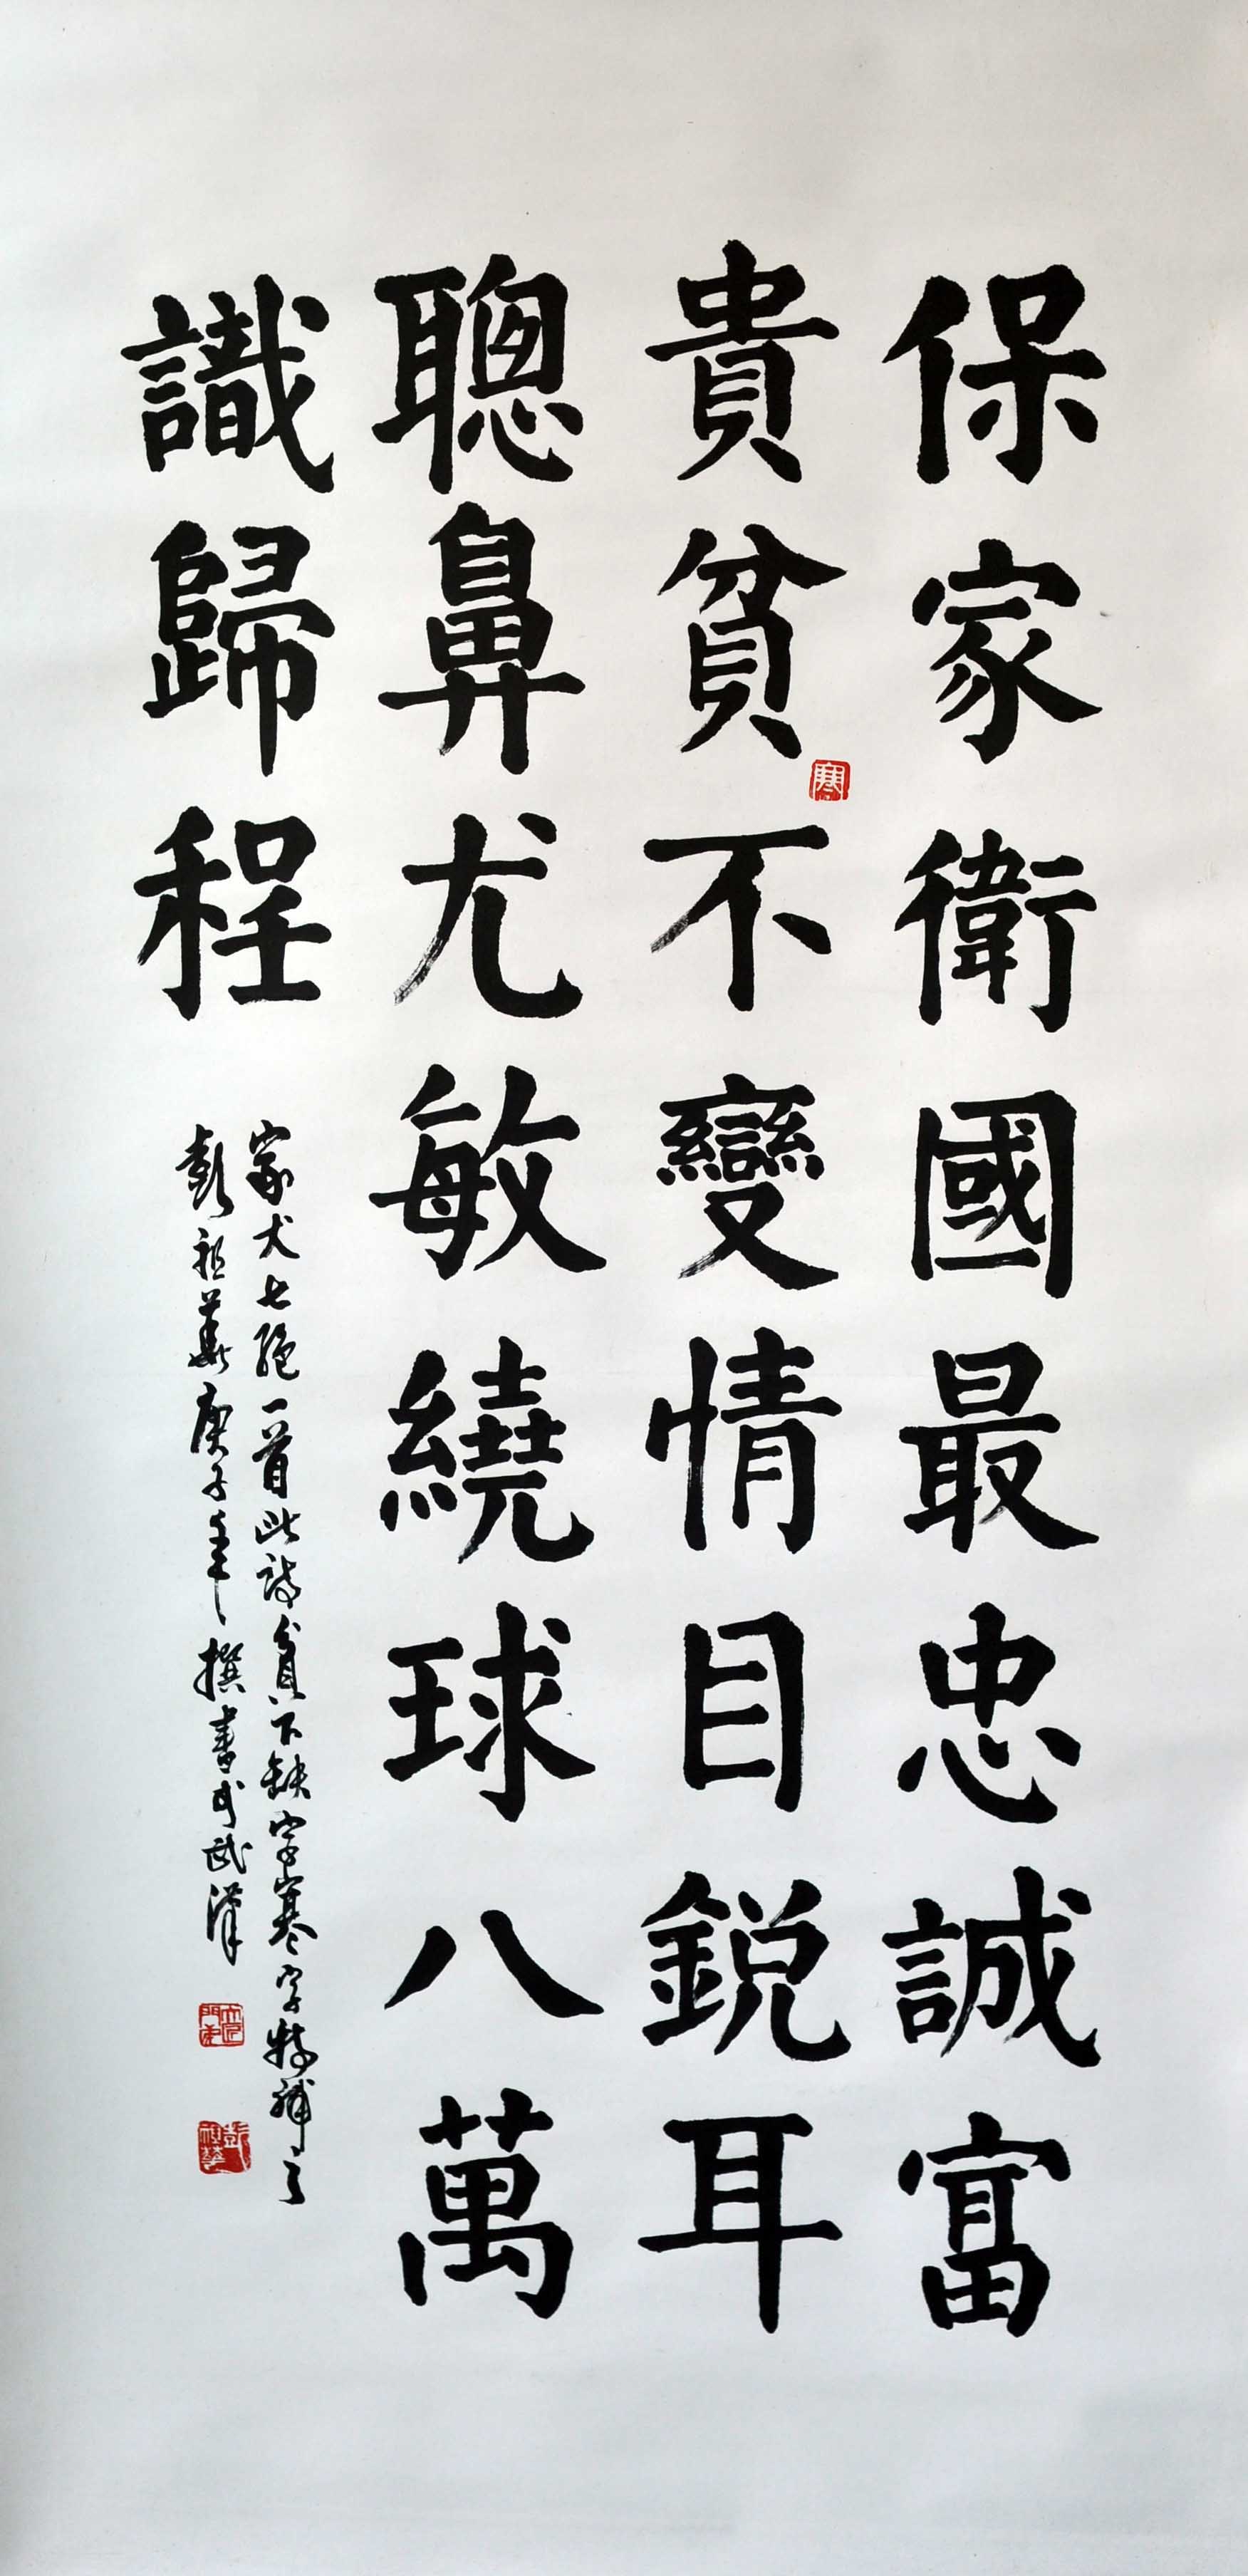 保家衛國最忠誠富
貴貧不變情目鋭耳
寒
聰鼻尤敏繞球八萬
識歸程
家犬七絕一首此詩貧下缺字寒字特補之
彭祖華庚子年撰書於武漢
彭祖華